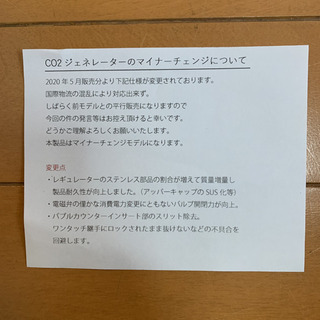 CO2 ジェネレーターのマイナーチェンジについて
2020年5月販売分より下記仕様が変更されております。
国際物流の混乱により対応出来ず、
しばらく前モデルとの平行販売になりますので
今回の件の発言等はお控え頂けると幸いです。
どうかご理解よろしくお願いいたします。
本製品はマイナーチェンジモデルになります。
変更点
・レギュレーターのステンレス部品の割合が増えて質量増量し
製品耐久性が向上しました。(アッパーキャップのSUS化等)
・電磁弁の僅かな消費電力変更にともないバルブ開閉力が向上。
・バブルカウンターインサート部のスリット除去。
ワンタッチ継手にロックされたまま抜けないなどの不具合を
回避します。